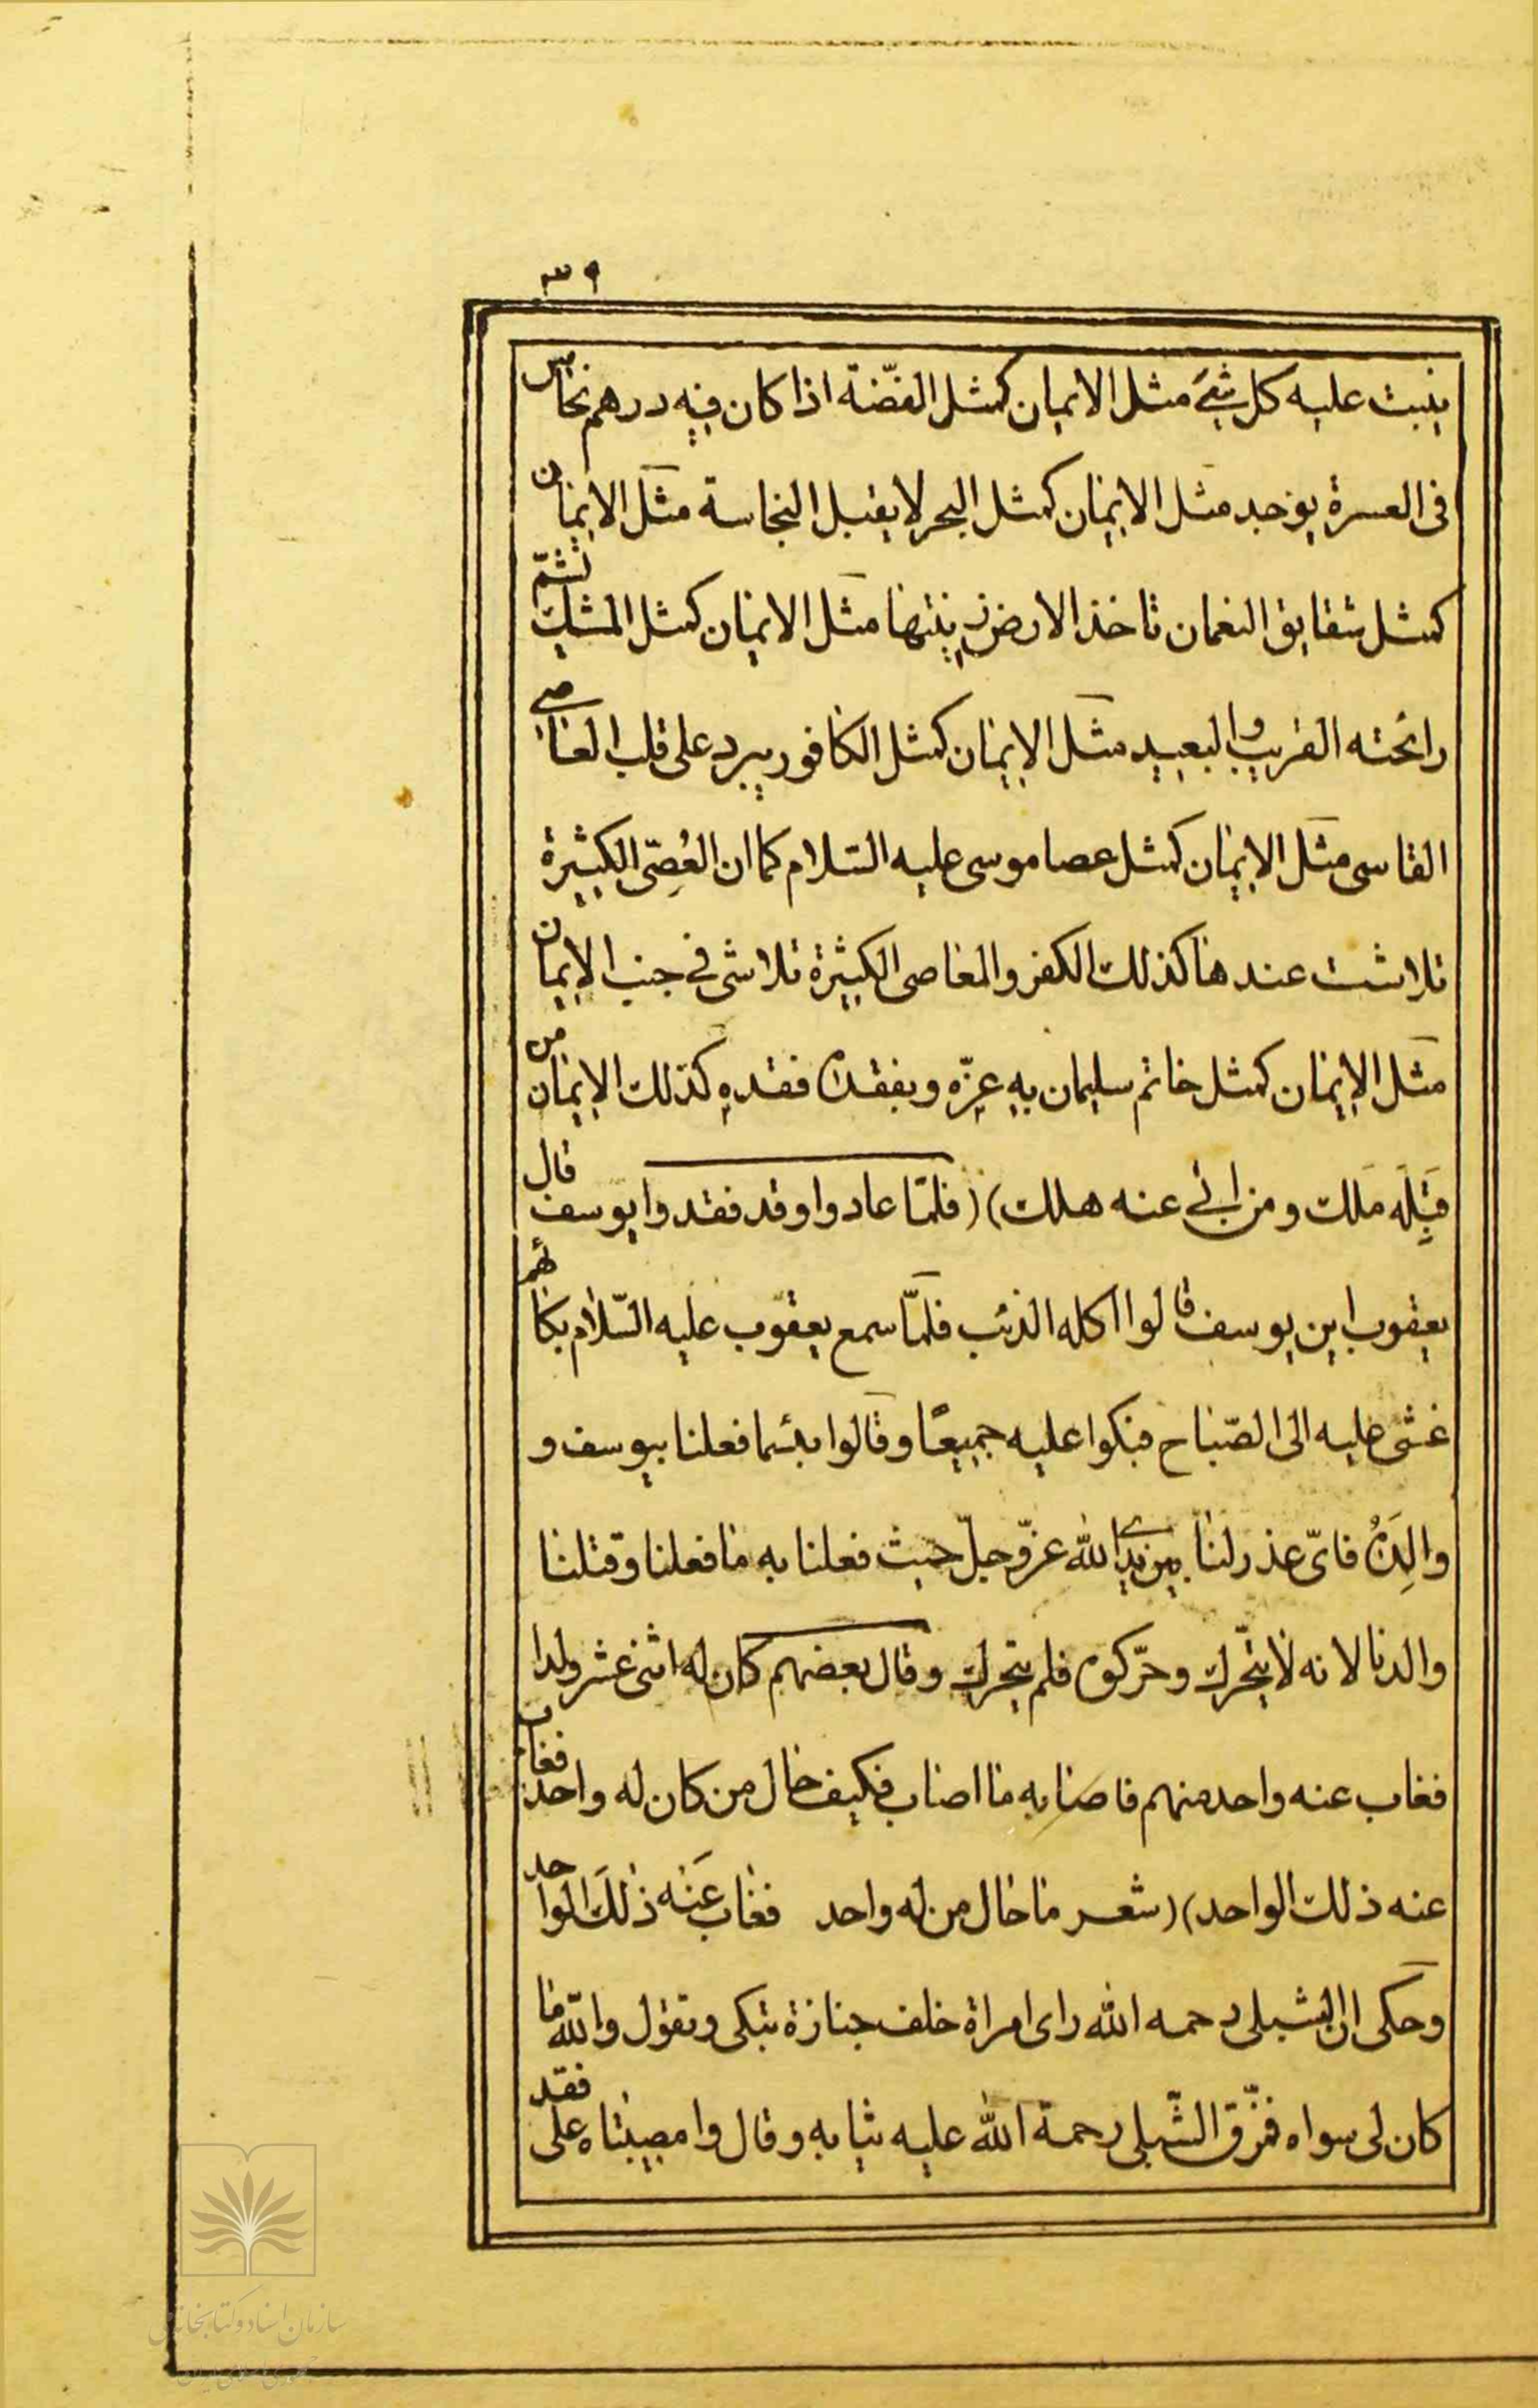 ٣٩
ينبت عليه كل شئ مثل الايمان كمثل الفضّة اذا كان فيه درهم نحاس
فى العسرة يؤخد مثل الايمان كمثل البحر لا يقبل النجاسة مثل الايمان
كمثل شقايق النعمان تاخذ الارض زينتها مثل الايمان كمثل المشك تشمّ
رائحته القريب والبعيد مثل الايمان كمثل الكافور يبرد على قلب العاصى
القاسى مثل الايمان كمثل عصا موسى عليه السّلام كما ان العُصِىّ الكثيرة
تلاشت عندها كذلك الكفر والمعاصى الكثيرة تلاشى فى جنب الايمان
مثل الايمان كمثل خاتم سليمان به عِزّه وبفقده فقده كذلك الايمان من
قبِلَه مَلك ومن ابى عنه هلك) (فلمّا عادوا وقد فقدوا يوسف قال
يعقوب اين يوسف قالوا اكله الذئب فلمّا سمع يعقوب عليه السّلام بكائهم
غشى عليه الى الصّباح فبكوا عليه جميعًا وقالوا بئسما فعلنا بيوسف و
والِدهُ فاىّ عذر لنا بين يدى الله عزّ وجلّ حيث فعلنا به ما فعلنا وقتلنا
والدنا لانه لا يتحّرك وحرّكوه فلم يتحرك وقال بعضهم كان له اثنى عشر ولدا
فغاب عنه واحد منهم فاصابه ما اصاب فكيف حال من كان له واحد فغاب
عنه ذلك الواحد) (شعر ما حال من له واحد فغاب عَنه ذلَك الواحد
وحكى ان الشبلى رحمه الله راى امراة خلف جنازة تبكى وتقول والله ما
كان لى سواه فمزّق الشّبلى رحمة الله عليه ثيابه وقال وا مصيبتاه على فقد
سازمان اسناد و کتابخانه ملی
جمهوری اسلامی ایران